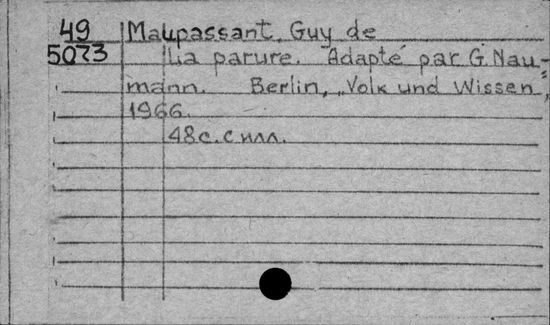 49 Maupassant, Guy de
5073 La parure. Adapté par G. Nau-
mann. Berlin, „Volk und Wissen“,
1966.
48 с. с илл.